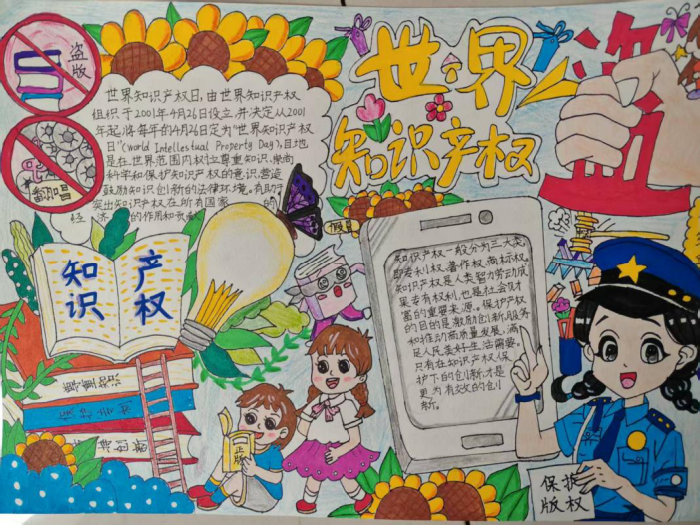 盗版
翻唱
世界
知识产权
盗
世界知识产权日,由世界知识产权
组织于2001年4月26日设立,并决定从2001
年起,将每年的4月26日定为“世界知识产权
日”(World Intellestual Property Day),目地
是在世界范围内树立尊重知识、崇尚
科学和保护知识产权的意识,营造
鼓励知识创新的法律环境。有助于
突出知识产权在所有国家的
经济的作用和贡献
知识
产权
保护
知识产权一般分为三大类,
即专利权、著作权、商标权。
知识产权是人类智力劳动成
果专有权利,也是社会财
富的重要来源。保护产权
的目的是激励创新,服务
和推动高质量发展,满
足人民美好生活需要。
只有在知识产权保
护下的创新,才是
更为有效的创
新。
正版
保护
版权